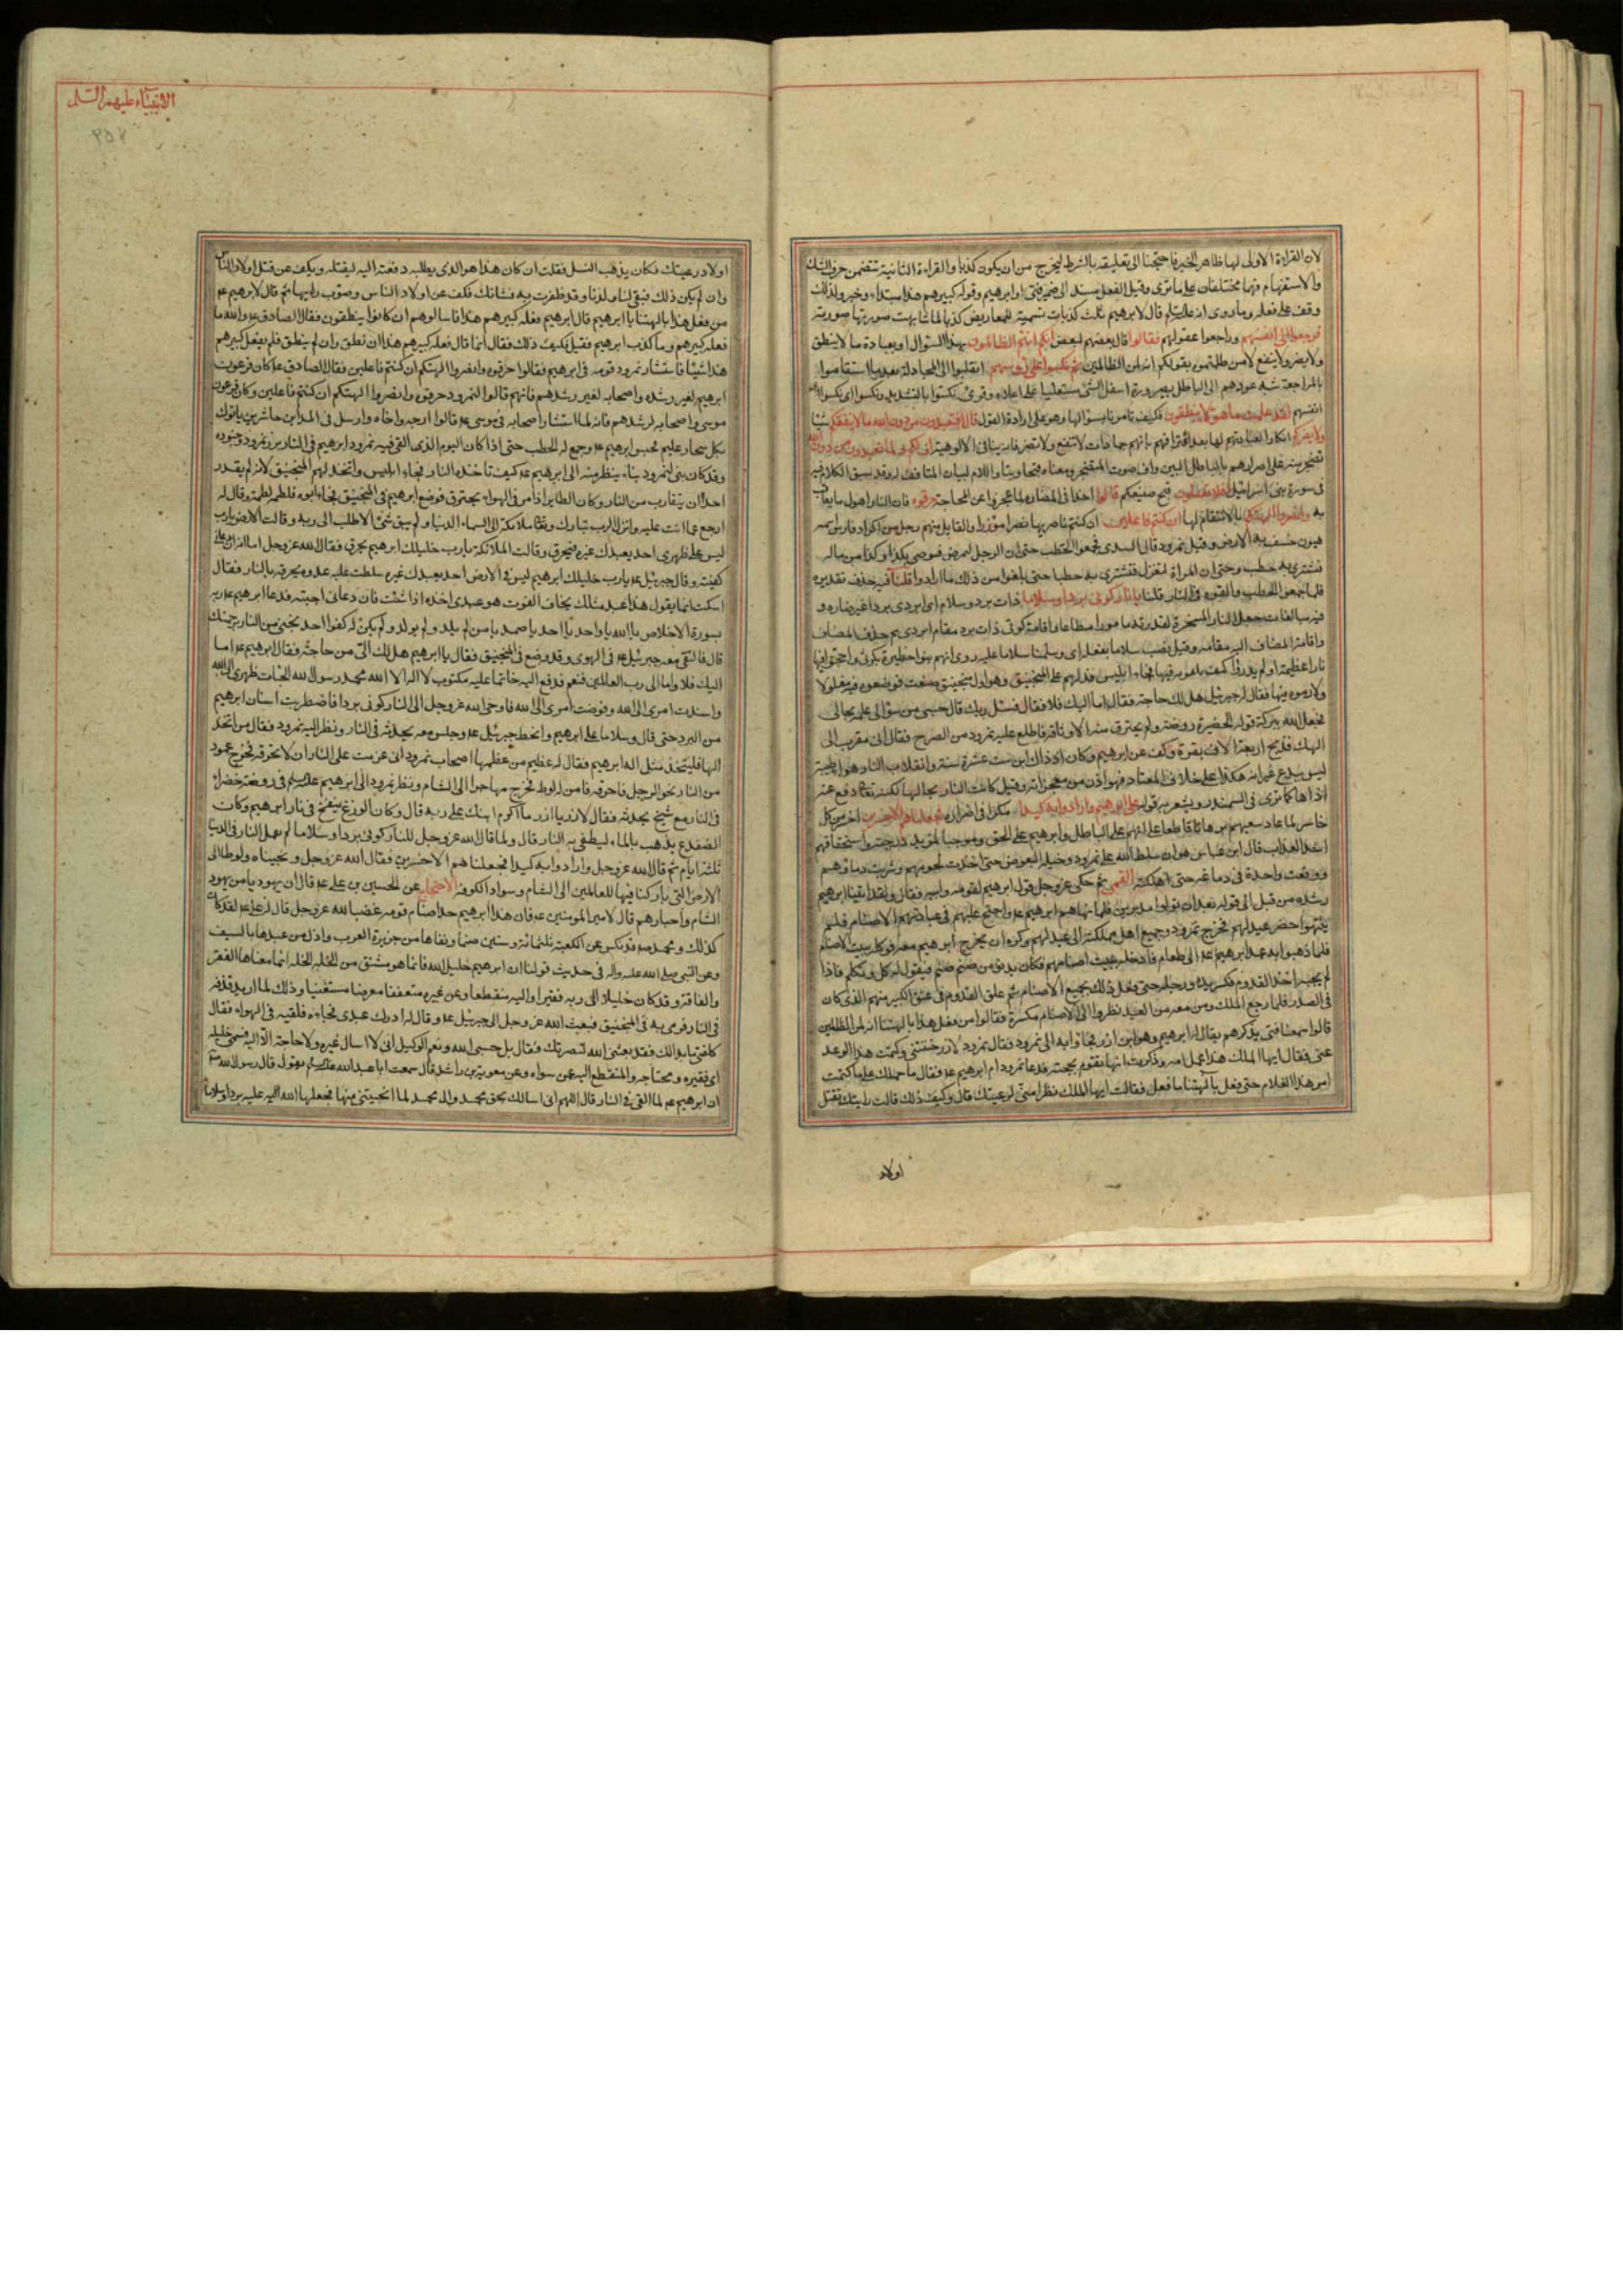 لان القراءة الاولى لها ظاهر الخبر فاحتجنا الى تعليقه بالشرط ليخرج من ان يكون كذبا والقراءة الثانية تتضمن حرف الشك
والاستفهام فهما مختلفان على ما ترى وقيل الفعل مسند الى ضمير فتى او ابرهيم وقوله كبيرهم هذا مبتداء وخبر ولذلك
وقف على فعله وما روى انه عليه السلم قال لابرهيم ثلث كذبات تسمية للمعاريض كذبا لما شابهت صورتها صورته
فرجعوا الى انفسهم وراجعوا عقولهم فقالوا قال بعضهم لبعض انكم انتم الظالمون بهذا السوال او بعبادة ما لا ينطق
ولا يضر ولا ينفع لا من ظلمتموه بقولكم انه لمن الظالمين ثم نكسوا على رؤسهم انقلبوا الى المجادلة بعد ما استقاموا
بالمراجعة شبه عودهم الى الباطل بصيرورة اسفل الشئ مستعليا على اعلاه وقرئ نكسوا بالتشديد ونكسوا اى نكسوا
انفسهم لقد علمت ما هؤلاء ينطقون فكيف تامرنا بسوالها وهو على ارادة القول قال افتعبدون من دون الله ما لا ينفعكم شيئا
ولا يضركم انكار لعبادتهم لها بعد اقرارهم بانهم جمادات لا تنفع ولا تضر فانه ينافى الالوهية اف لكم ولما تعبدون من دون الله
تضجر منه على اصرارهم بالباطل البين واف صوت المتضجر ومعناه قبحا ونتنا واللام لبيان المتافف له وقد سبق الكلام فيه
فى سورة بنى اسرائيل افلا تعقلون قبح صنيعكم قالوا اخذا فى المضارة لما عجزوا عن المحاجة حرقوه فان النار اهول ما يعاقب
به وانصروا الهتكم بالانتقام لها ان كنتم فاعلين ان كنتم ناصرين لها نصرا مؤزرا والقايل منهم رجل من اكراد فارس اسمه
هيون خسف به الارض وقيل نمرود قال السدى فجمعوا الحطب حتى ان الرجل ليمرض فيوصى بكذا وكذا من ماله
فتشترى به حطب وحتى ان المراة لتغزل فتشترى به حطبا حتى بلغوا من ذلك ما ارادوا قلنا فيه حذف تقديره
فلما جمعوا الحطب والقوه فى النار قلنا يا نار كونى بردا وسلاما ذات برد وسلام اى ابردى بردا غير ضار و
فيه مبالغات جعل النار المسخرة لقدرته مامورا مطاعا واقامة كونى ذات برد مقام ابردى ثم حذف المضاف
واقامة المضاف اليه مقامه وقيل نصب سلاما بفعله اى وسلمنا سلاما عليه روى انهم بنوا حظيرة بكوثى واججوا فيها
نارا عظيمة
فجعل الله ببركة قوله الحضيرة روضة ولم يحترق منه الا وثاقه فاطلع عليه نمرود من الصرح فقال انى مقرب الى
الهك فذبح اربعة الاف بقرة وكف عن ابرهيم وكان اذ ذاك ابن ست عشرة سنة وانقلاب النار هواء طيبة
ليس ببدع غير انه هكذا على خلاف المعتاد فهو اذن من معجزاته وقيل كانت النار بحالها لكنه تعالى دفع عنه
اذاها كما ترى فى السمندر ويشعر به قوله على ابرهيم وارادوا به كيدا مكرا فى اضراره فجعلناهم الاخسرين اخسر من كل
خاسر لما عاد سعيهم برهانا قاطعا على انهم على الباطل وابرهيم على الحق وموجبا لمزيد درجته واستحقاقهم
اشد العذاب قال ابن عباس هو ان سلط الله على نمرود وخيله البعوض حتى اخذت لحومهم وشربت دماءهم
ووقعت واحدة فى دماغه حتى اهلكته القمى ثم حكى عز وجل قول ابرهيم لقومه وابيه فقال ولقد اتينا ابرهيم
رشده من قبل الى قوله بعد ان تولوا مدبرين فلما نهاهم ابرهيم عم واحتج عليهم فى عبادتهم الاصنام فلم
ينتهوا حضر عيد لهم فخرج نمرود وجميع اهل مملكته الى عيد لهم وكره ان يخرج ابرهيم معه فوكله ببيت الاصنام
فلما ذهبوا عمد ابرهيم عم الى طعام فادخله بيت اصنامهم فكان يدنو من صنم صنم فيقول له كل وتكلم فاذا
لم يجبه اخذ القدوم فكسر يده ورجله حتى فعل ذلك بجميع الاصنام ثم علق القدوم فى عنق الكبير منهم الذى كان
فى الصدر فلما رجع الملك ومن معه من العيد نظروا الى الاصنام مكسرة فقالوا من فعل هذا بالهتنا انه لمن الظالمين
قالوا سمعنا فتى يذكرهم يقال له ابرهيم وهو ابن ازر فجاؤا به الى نمرود فقال نمرود لازر خنتنى وكتمت هذا الولد
عنى فقال ايها الملك هذا عمل امه وذكرت انها تقوم بحجته فدعا نمرود ام ابرهيم عم فقال ما حملك على ما كتمت
امر هذا الغلام حتى فعل بالهتنا ما فعل فقالت ايها الملك نظرا منى لرعيتك قال وكيف ذلك قالت رايتك تقتل
اولاد
الانبياء عليهم السلم
٣٥٧
اولاد رعيتك فكان يذهب النسل فقلت ان كان هذا هو الذى يطلبه دفعته اليه ليقتله ويكف عن قتل اولاد الناس
وان لم يكن ذلك فبقى لنا ولدنا وقد ظفرت به فشانك فكف عن اولاد الناس وصوب رايها ثم قال لابرهيم عم
من فعل هذا بالهتنا يا ابرهيم قال ابرهيم فعله كبيرهم هذا فاسالوهم ان كانوا ينطقون فقال الصادق عم والله ما
فعله كبيرهم وما كذب ابرهيم فقيل فكيف ذلك فقال انما قال فعله كبيرهم هذا ان نطق وان لم ينطق فلم يفعل كبيرهم
هذا شيئا فاستشار نمرود قومه فى ابرهيم فقالوا حرقوه وانصروا الهتكم ان كنتم فاعلين فقال الصادق عم كان فرعون
ابرهيم لغير رشده واصحابه لغير رشدهم فانهم قالوا لنمرود حرقوه وانصروا الهتكم ان كنتم فاعلين وكان فرعون
موسى واصحابه لرشدهم فانه لما استشار اصحابه فى موسى عم قالوا ارجه واخاه وارسل فى المداين حاشرين ياتوك
بكل سحار عليم فحبس ابرهيم عم وجمع له الحطب حتى اذا كان اليوم الذى القى فيه نمرود ابرهيم فى النار برز نمرود وجنوده
وقد كان بنى لنمرود بناء ينظر منه الى ابرهيم عم كيف تاخذه النار فجاء ابليس واتخذ لهم المنجنيق لانه لم يقدر
احد ان يتقارب من النار وكان الطاير اذا مر فى الهواء يحترق فوضع ابرهيم فى المنجنيق فجاء ابوه فلطمه لطمة وقال له
ارجع عما انت عليه وانزل الرب تبارك وتعالى ملائكته الى السماء الدنيا ولم يبق شئ الا طلب الى ربه وقالت الارض يا رب
ليس على ظهرى احد يعبدك غيره فيحرق وقالت الملائكة يا رب خليلك ابرهيم يحرق فقال الله عز وجل اما انه ان دعانى
كفيته وقال جبرئيل عم يا رب خليلك ابرهيم ليس فى الارض احد يعبدك غيره سلطت عليه عدوه يحرقه بالنار فقال
اسكت انما يقول هذا عبد مثلك يخاف الفوت هو عبدى اخذه اذا شئت فان دعانى اجبته فدعا ابرهيم عم ربه
بسورة الاخلاص يا الله يا واحد يا احد يا صمد يا من لم يلد ولم يولد ولم يكن له كفوا احد نجنى من النار برحمتك
قال فالتقى معه جبرئيل عم فى الهوى وقد وضع فى المنجنيق فقال يا ابرهيم هل لك الى من حاجة فقال ابرهيم عم اما
اليك فلا واما الى رب العالمين فنعم فدفع اليه خاتما عليه مكتوب لا اله الا الله محمد رسول الله الجات ظهرى الى الله
واسندت امرى الى الله وفوضت امرى الى الله فاوحى الله عز وجل الى النار كونى بردا فاضطربت اسنان ابرهيم
من البرد حتى قال وسلاما على ابرهيم وانحط جبرئيل عم وجلس معه يحدثه فى النار ونظر اليه نمرود فقال من اتخذ
الها فليتخذ مثل اله ابرهيم فقال له عظيم من عظماء اصحاب نمرود انى عزمت على النار ان لا تحرقه فخرج عمود
من النار نحو الرجل فاحرقه فامن له لوط فخرج مهاجرا الى الشام ونظر نمرود الى ابرهيم عليه السلم فى روضة خضراء
فى النار مع شيخ يحدثه فقال لازر يا ازر ما اكرم ابنك على ربه قال وكان الوزغ ينفخ فى نار ابرهيم وكان
الضفدع يذهب بالماء ليطفى به النار قال ولما قال الله عز وجل للنار كونى بردا وسلاما لم تعمل النار فى الدنيا
ثلثة ايام ثم قال الله عز وجل وارادوا به كيدا فجعلناهم الاخسرين فقال الله عز وجل ونجيناه ولوطا الى
الارض التى باركنا فيها للعالمين الى الشام وسواد الكوفة الاحتجاج عن الحسين بن على عم قال ان يهوديا من يهود
الشام واحبارهم قال لامير المومنين عم فان هذا ابرهيم جذ اصنام قومه غضبا لله عز وجل قال له على عم لقد كان
كذلك ومحمد صم قد نكس عن الكعبة ثلثمائة وستين صنما ونفاها من جزيرة العرب واذل من عبدها بالسيف
وعن النبى صلى الله عليه واله فى حديث قولنا ان ابرهيم خليل الله فانما هو مشتق من الخلة الخلة انما معناها الفقر
والفاقة وقد كان خليلا الى ربه فقيرا واليه منقطعا وعن غيره متعففا معرضا مستغنيا وذلك لما اريد قذفه
فى النار فرمى به فى المنجنيق فبعث الله عز وجل الى جبرئيل عم وقال له ادرك عبدى فجاءه فلقيه فى الهواء فقال
كلفنى ما بدا لك فقد بعثنى الله لنصرتك فقال بل حسبى الله ونعم الوكيل انى لا اسال غيره ولا حاجة الا اليه فسمى خليله
اى فقيره ومحتاجه والمنقطع اليه عمن سواه وعن معوية بن راشد قال سمعت ابا عبد الله عليه السلم يقول قال رسول الله صم
ان ابرهيم عم لما القى فى النار قال اللهم انى اسالك بحق محمد وال محمد لما انجيتنى منها فجعلها الله عليه بردا وسلاما